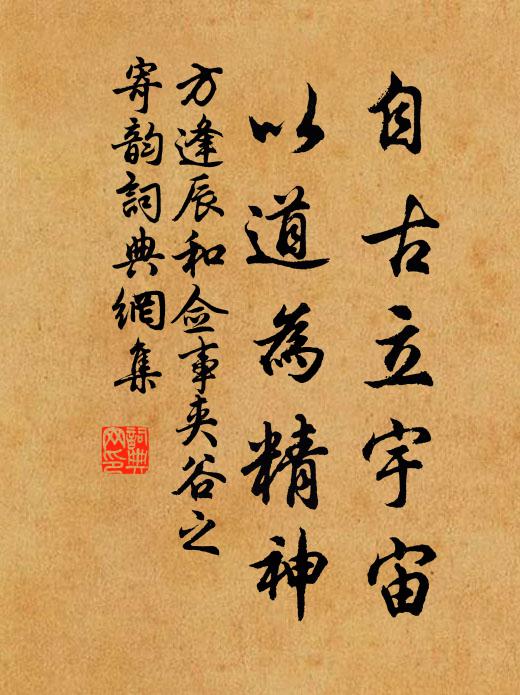 自古立宇宙
以道為精神
方逢辰和佥事夹谷之
寄韵詞典網集
詞典网印